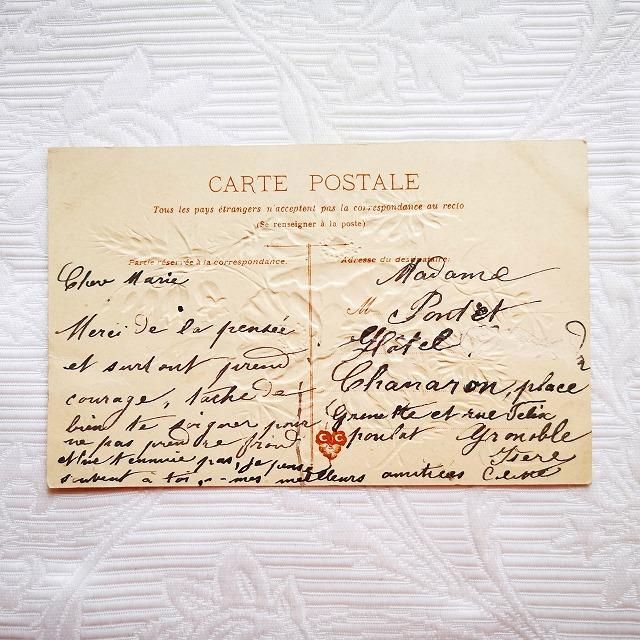 CARTE POSTALE
Tous les pays étrangers n'acceptent pas la correspondance au recto
(Se renseigner à la poste)
Partie réservée à la correspondance.
Adresse du destinataire.
Chere Marie
Merci de la pensée
et surtout prend
courage, tache de
bien te soigner pour
ne pas prendre froid
et ne t'ennuie pas, je pense
souvent à toi, mes meilleurs amitiées
Madame
M Pontet
Hôtel
Chanaron, place
Grenette et rue Félix
poulat Grenoble
Isère
C C